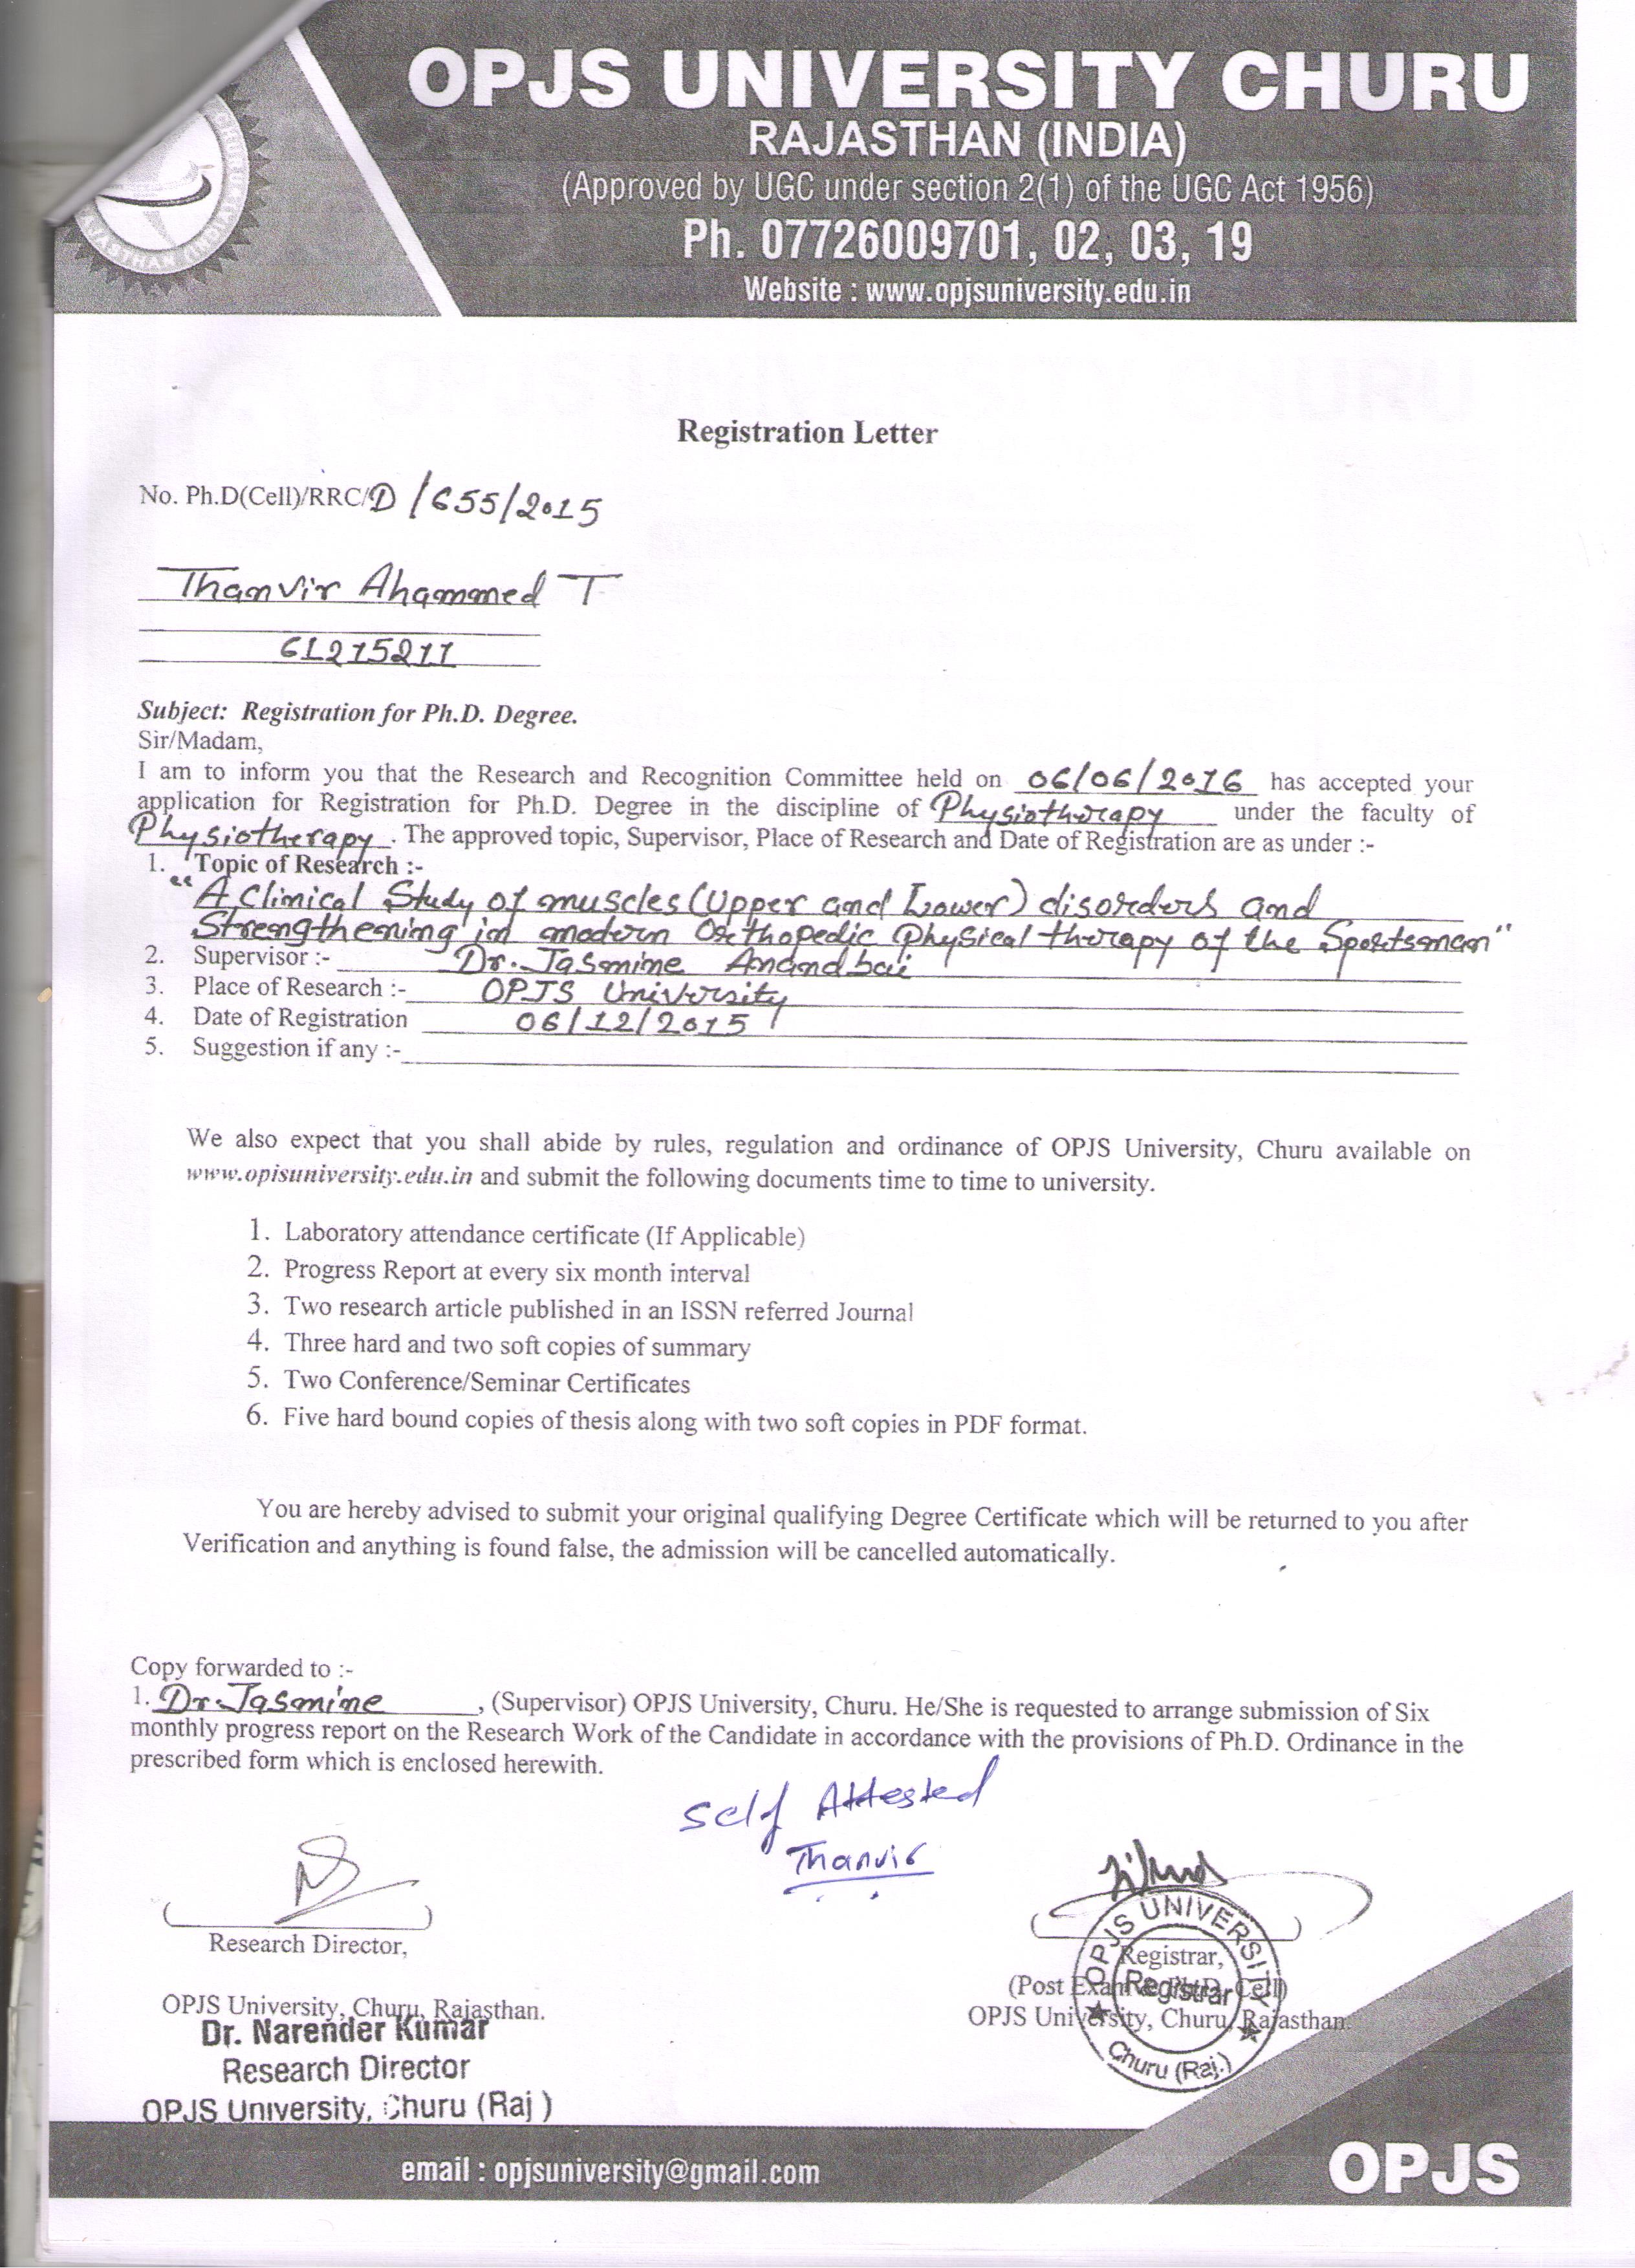 OPJS UNIVERSITY CHURU
RAJASTHAN (INDIA)
(Approved by UGC under section 2(1) of the UGC Act 1956)
Ph. 07726009701, 02, 03, 19
Website : www.opjsuniversity.edu.in
RAJASTHAN (INDIA)
Registration Letter
No. Ph.D(Cell)/RRC/D/655/2015
Thanvir Ahammed T
61215211
Subject: Registration for Ph.D. Degree.
Sir/Madam,
I am to inform you that the Research and Recognition Committee held on 06/06/2016 has accepted your
application for Registration for Ph.D. Degree in the discipline of Physiotherapy under the faculty of
Physiotherapy. The approved topic, Supervisor, Place of Research and Date of Registration are as under :-
1. Topic of Research :-
"A Clinical Study of muscles (Upper and Lower) disorders and
Strengthening in modern Orthopedic Physical therapy of the Sportsman"
2. Supervisor :- Dr. Jasmine Anandbai
3. Place of Research :- OPJS University
4. Date of Registration 06/12/2015
5. Suggestion if any :-
We also expect that you shall abide by rules, regulation and ordinance of OPJS University, Churu available on
www.opisuniversity.edu.in and submit the following documents time to time to university.
1. Laboratory attendance certificate (If Applicable)
2. Progress Report at every six month interval
3. Two research article published in an ISSN referred Journal
4. Three hard and two soft copies of summary
5. Two Conference/Seminar Certificates
6. Five hard bound copies of thesis along with two soft copies in PDF format.
You are hereby advised to submit your original qualifying Degree Certificate which will be returned to you after
Verification and anything is found false, the admission will be cancelled automatically.
Copy forwarded to :-
1. Dr. Jasmine, (Supervisor) OPJS University, Churu. He/She is requested to arrange submission of Six
monthly progress report on the Research Work of the Candidate in accordance with the provisions of Ph.D. Ordinance in the
prescribed form which is enclosed herewith.
Self Attested
Thanvir
Research Director,
OPJS University, Churu, Rajasthan.
Dr. Narender Kumar
Research Director
OPJS University, Churu (Raj )
Registrar,
(Post Exam & Ph.D. Cell)
OPJS University, Churu, Rajasthan.
OPJS UNIVERSITY
Registrar
Churu (Raj.)
email : opjsuniversity@gmail.com
OPJS